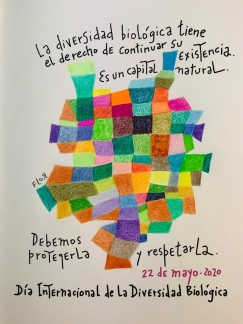 La diversidad biológica tiene
el derecho de continuar su existencia.
Es un capital natural.
FLOR
Debemos
protegerla y respetarla.
22 de mayo·2020
Día Internacional de La Diversidad Biológica